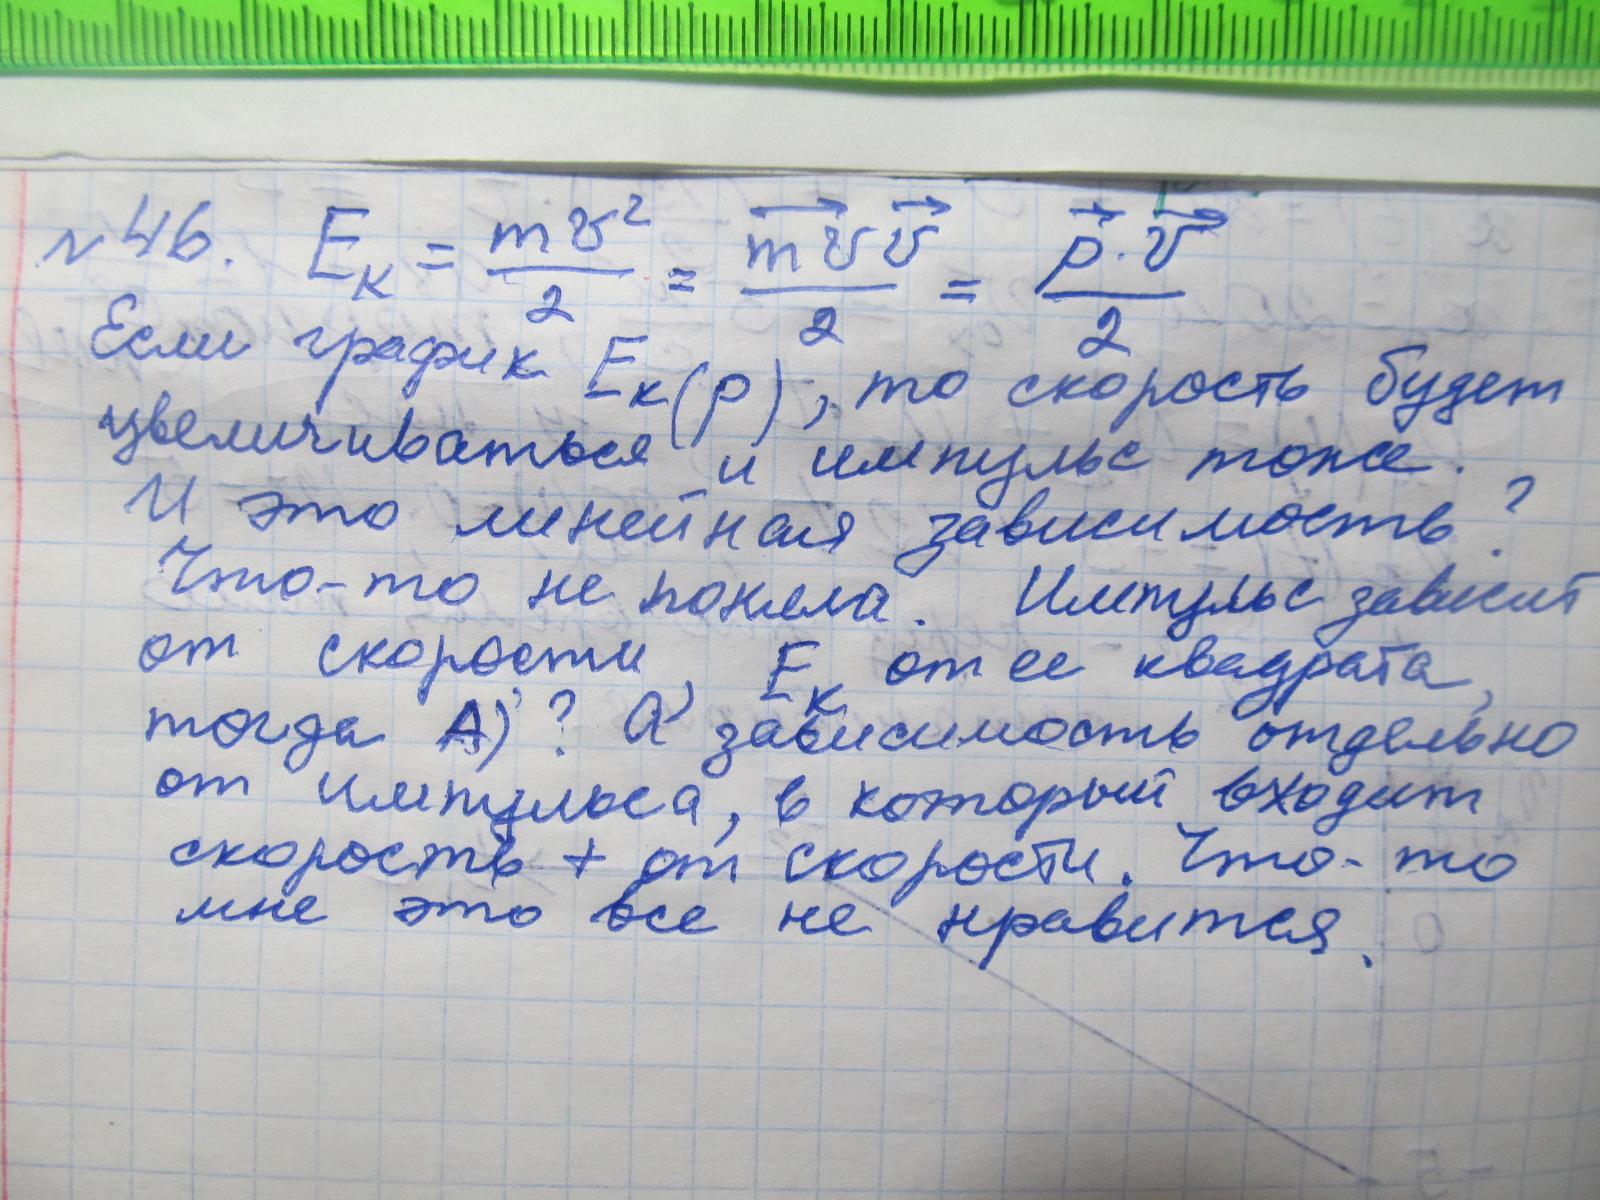 №46. Eк = mv²/2 = mvv/2 = p·v/2
Если график Eк(p), то скорость будет
увеличиваться и импульс тоже.
И это линейная зависимость?
Что-то не поняла. Импульс зависит
от скорости, Eк от ее квадрата,
тогда А)? А зависимость отдельно
от импульса, в который входит
скорость + от скорости. Что-то
мне это все не нравится.